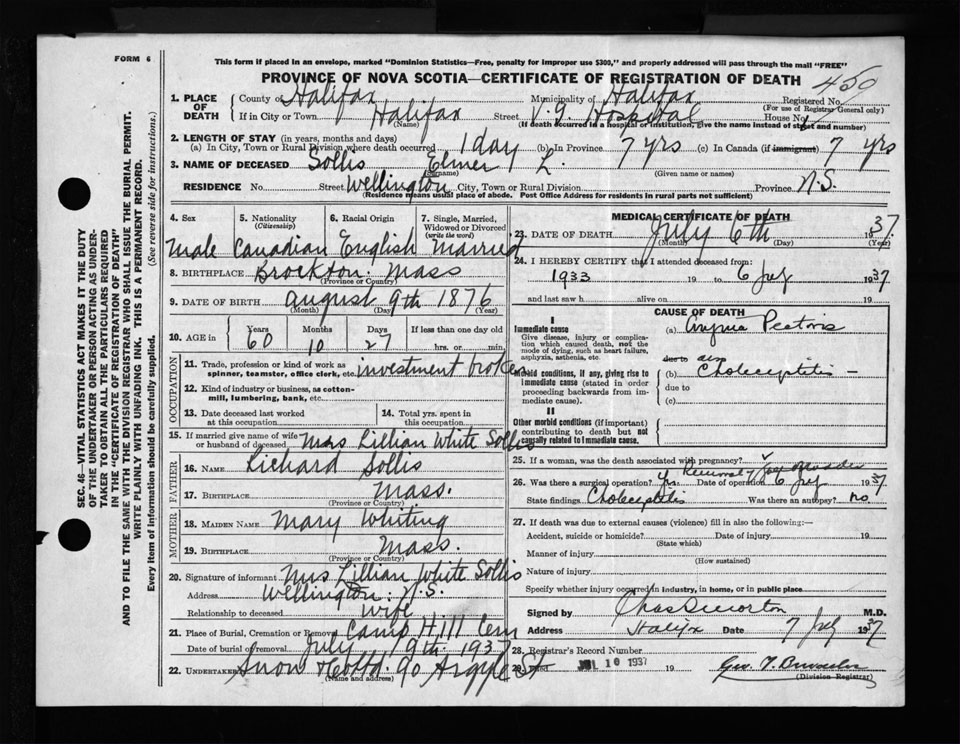 FORM 6
This form if placed in an envelope, marked "Dominion Statistics—Free, penalty for improper use $300," and properly addressed will pass through the mail "FREE"
PROVINCE OF NOVA SCOTIA—CERTIFICATE OF REGISTRATION OF DEATH
450
1. PLACE OF DEATH
County of Halifax Municipality of Halifax Registered No.
(For use of Registrar General only)
If in City or Town Halifax Street V. G. Hospital House No.
(Name) (If death occurred in a hospital or institution, give the name instead of street and number)
2. LENGTH OF STAY (in years, months and days)
(a) In City, Town or Rural Division where death occurred 1 day (b) In Province 7 yrs (c) In Canada (if immigrant) 7 yrs
3. NAME OF DECEASED Sollis Elmer L.
(Surname) (Given name or names)
RESIDENCE No. Street Wellington City, Town or Rural Division Province N.S.
(Residence means usual place of abode. Post Office Address for residents in rural parts not sufficient)
4. Sex
5. Nationality (Citizenship)
6. Racial Origin
7. Single, Married, Widowed or Divorced (write the word)
Male Canadian English Married
8. BIRTHPLACE Brockton. Mass
(Province or Country)
9. DATE OF BIRTH August 9th 1876
(Month) (Day) (Year)
10. AGE in Years Months Days If less than one day old
60 10 27 hrs. or min.
OCCUPATION
11. Trade, profession or kind of work as spinner, teamster, office clerk, etc. investment broker
12. Kind of industry or business, as cotton-mill, lumbering, bank, etc.
13. Date deceased last worked at this occupation
14. Total yrs. spent in this occupation
15. If married give name of wife or husband of deceased Mrs Lillian White Sollis
FATHER
16. NAME Richard Sollis
17. BIRTHPLACE Mass.
(Province or Country)
MOTHER
18. MAIDEN NAME Mary Whiting
19. BIRTHPLACE Mass.
(Province or Country)
20. Signature of informant Mrs Lillian White Sollis
Address Wellington: N.S.
Relationship to deceased Wife
21. Place of Burial, Cremation or Removal Camp Hill Cem
Date of burial or removal July 9th. 1937
22. UNDERTAKER Snow & Co Ltd. 90 Argyle St
(Name and address)
MEDICAL CERTIFICATE OF DEATH
23. DATE OF DEATH July 6th 1937.
(Month) (Day) (Year)
24. I HEREBY CERTIFY that I attended deceased from:
1933 19 to 6 July 1937
and last saw h alive on 19
CAUSE OF DEATH
I
Immediate cause
Give disease, injury or complication which caused death, not the mode of dying, such as heart failure, asphyxia, asthenia, etc.
(a) Angina Pectoris
due to
Morbid conditions, if any, giving rise to immediate cause (stated in order proceeding backwards from immediate cause).
(b) Cholecystitis —
due to
(c)
II
Other morbid conditions (if important) contributing to death but not causally related to immediate cause.
25. If a woman, was the death associated with pregnancy?
Removal
26. Was there a surgical operation? Yes. Date of operation 6 July 1937
State findings Cholecystitis Was there an autopsy? no
27. If death was due to external causes (violence) fill in also the following:—
Accident, suicide or homicide? Date of injury 19
(State which)
Manner of injury
(How sustained)
Nature of injury
Specify whether injury occurred in industry, in home, or in public place
Signed by M.D.
Address Halifax Date 7 July 1937
28. Registrar's Record Number
10 1937 19
(Division Registrar)
SEC. 46—VITAL STATISTICS ACT MAKES IT THE DUTY
OF THE UNDERTAKER OR PERSON ACTING AS UNDER-
TAKER TO OBTAIN ALL THE PARTICULARS REQUIRED
IN THE "CERTIFICATE OF REGISTRATION OF DEATH"
AND TO FILE THE SAME WITH THE DIVISION REGISTRAR WHO SHALL ISSUE THE BURIAL PERMIT.
WRITE PLAINLY WITH UNFADING INK. THIS IS A PERMANENT RECORD.
Every item of information should be carefully supplied. (See reverse side for instructions.)